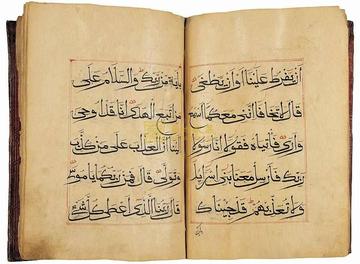 أن يفرط علينا أو أن يطغى
قال لا تخافا إنني معكما أسمع
وأرى فأتياه فقولا إنا رسولا
ربك فأرسل معنا بني إسرائيل
ولا تعذبهم قد جئناك
بآية من ربك والسلام على
من اتبع الهدى إنا قد أوحي
إلينا أن العذاب على من كذب
وتولى قال فمن ربكما يا موسى
قال ربنا الذي أعطى كل شيء